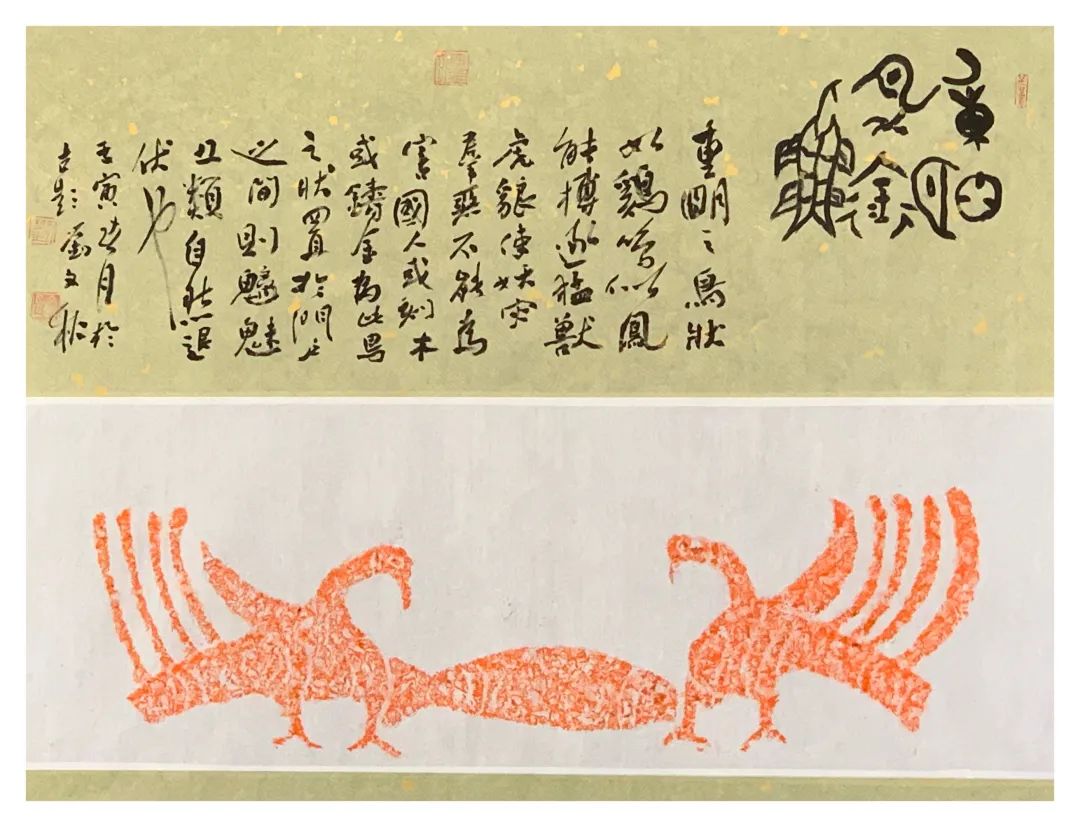 重明
重明之鳥狀
如鷄鳴似鳳
能搏逐猛獸
虎狼使妖灾
羣惡不能為
害國人或刻木
或鑄金為此鳥
之狀置於門户
之間則魑魅
丑類自然退
伏也
壬寅月於
古彭劉文